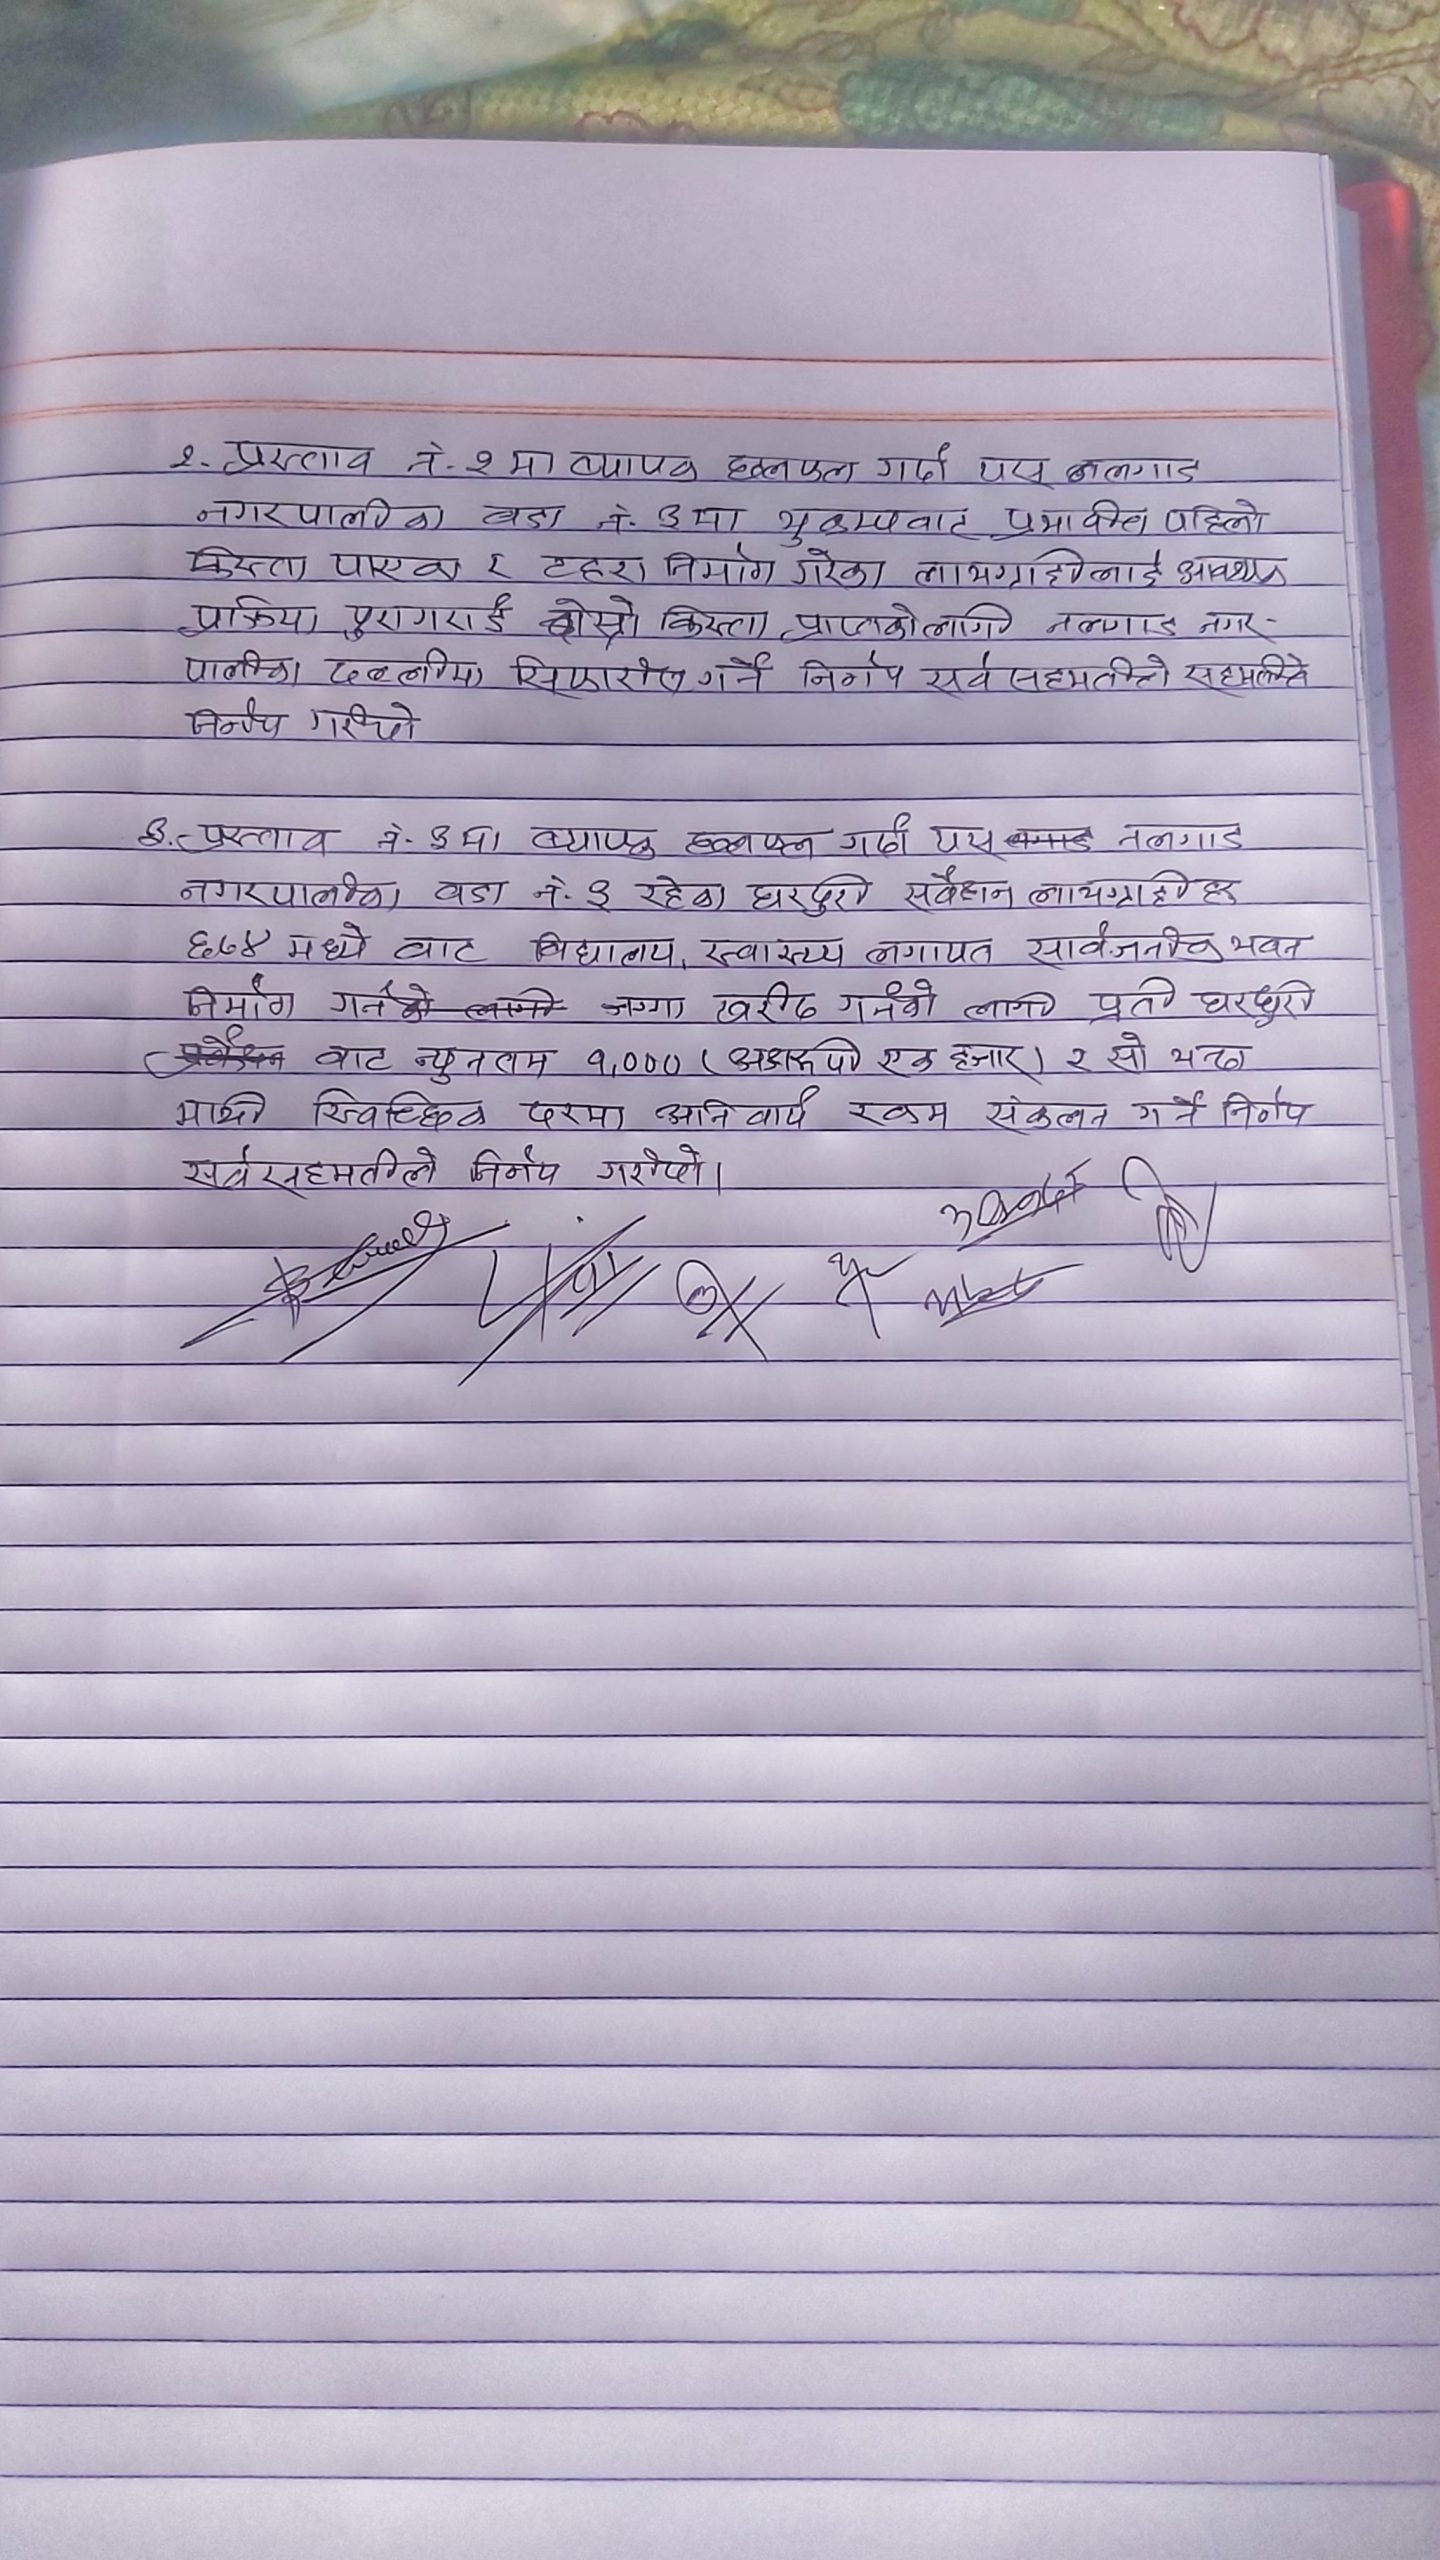 २. प्रस्ताव नं. २ मा व्यापक छलफल गर्दा यस नलगाड
नगरपालीका वडा नं. ३ मा भुकम्पवाट प्रभावीत पहिलो
किस्ता पाएका र टहरा निर्माण गरेका लाभग्राहीलाई आवश्यक
प्रक्रिया पुरागराई दोस्रो किस्ता प्राप्तकोलागी नलगाड नगर-
पालीका दल्लीमा सिफारीस गर्ने निर्णय सर्व सहमतीले सहमतीले
निर्णय गरीयो
३. प्रस्ताव नं. ३ मा व्यापक छलफल गर्दा यस नलगाड
नगरपालीका वडा नं. ३ रहेका घरधुरी सर्वेक्षन लाभग्राही हरु
६७४ मध्ये वाट विद्यालय, स्वास्थ्य लगायत सार्वजनीक भवन
निर्माण गर्न जग्गा खरीद गर्नको लागी प्रती घरधुरी
वाट न्युनतम १,००० (अक्षरुपी एक हजार) र सो भन्दा
माथी स्विच्छिक दरमा अनिवार्य रकम संकलन गर्ने निर्णय
सर्वसहमतीले निर्णय गरीयो।